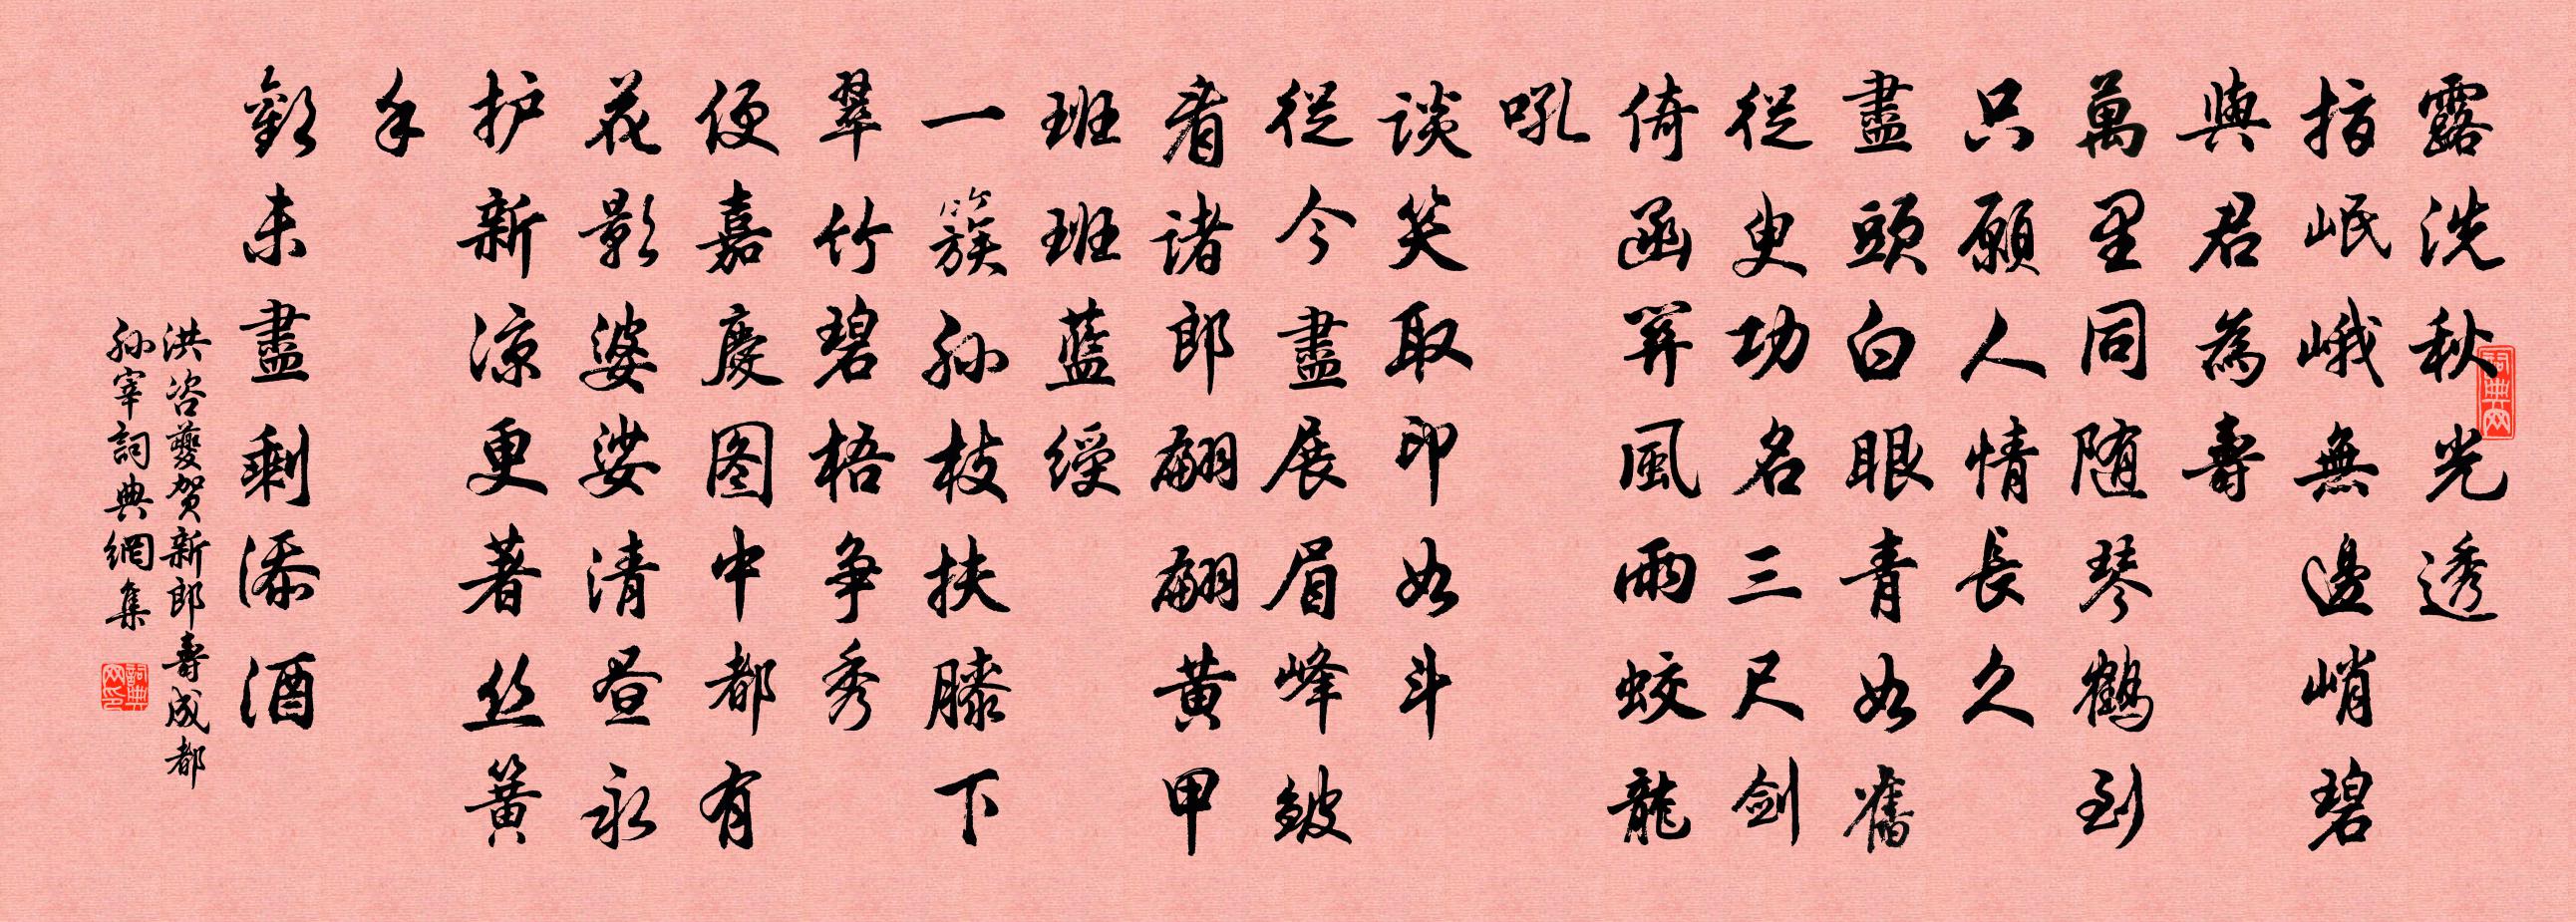 露洗秋光透
指岷峨無邊峭碧
與君為壽
萬里同随琴鶴到
只願人情長久
盡頭白眼青如舊
從臾功名三尺剑
倚函關風雨蛟龍
吼
談笑取印如斗
從今盡展眉峰皴
看诸郎翩翩黄甲
班班藍綬
一簇孙枝扶膝下
翠竹碧梧争秀
便嘉慶图中都有
花影婆娑清昼永
护新凉更著丝簧
手
歡未盡剩添酒
洪咨夔贺新郎壽成都
孙宰詞典網集
詞典网
詞典网印